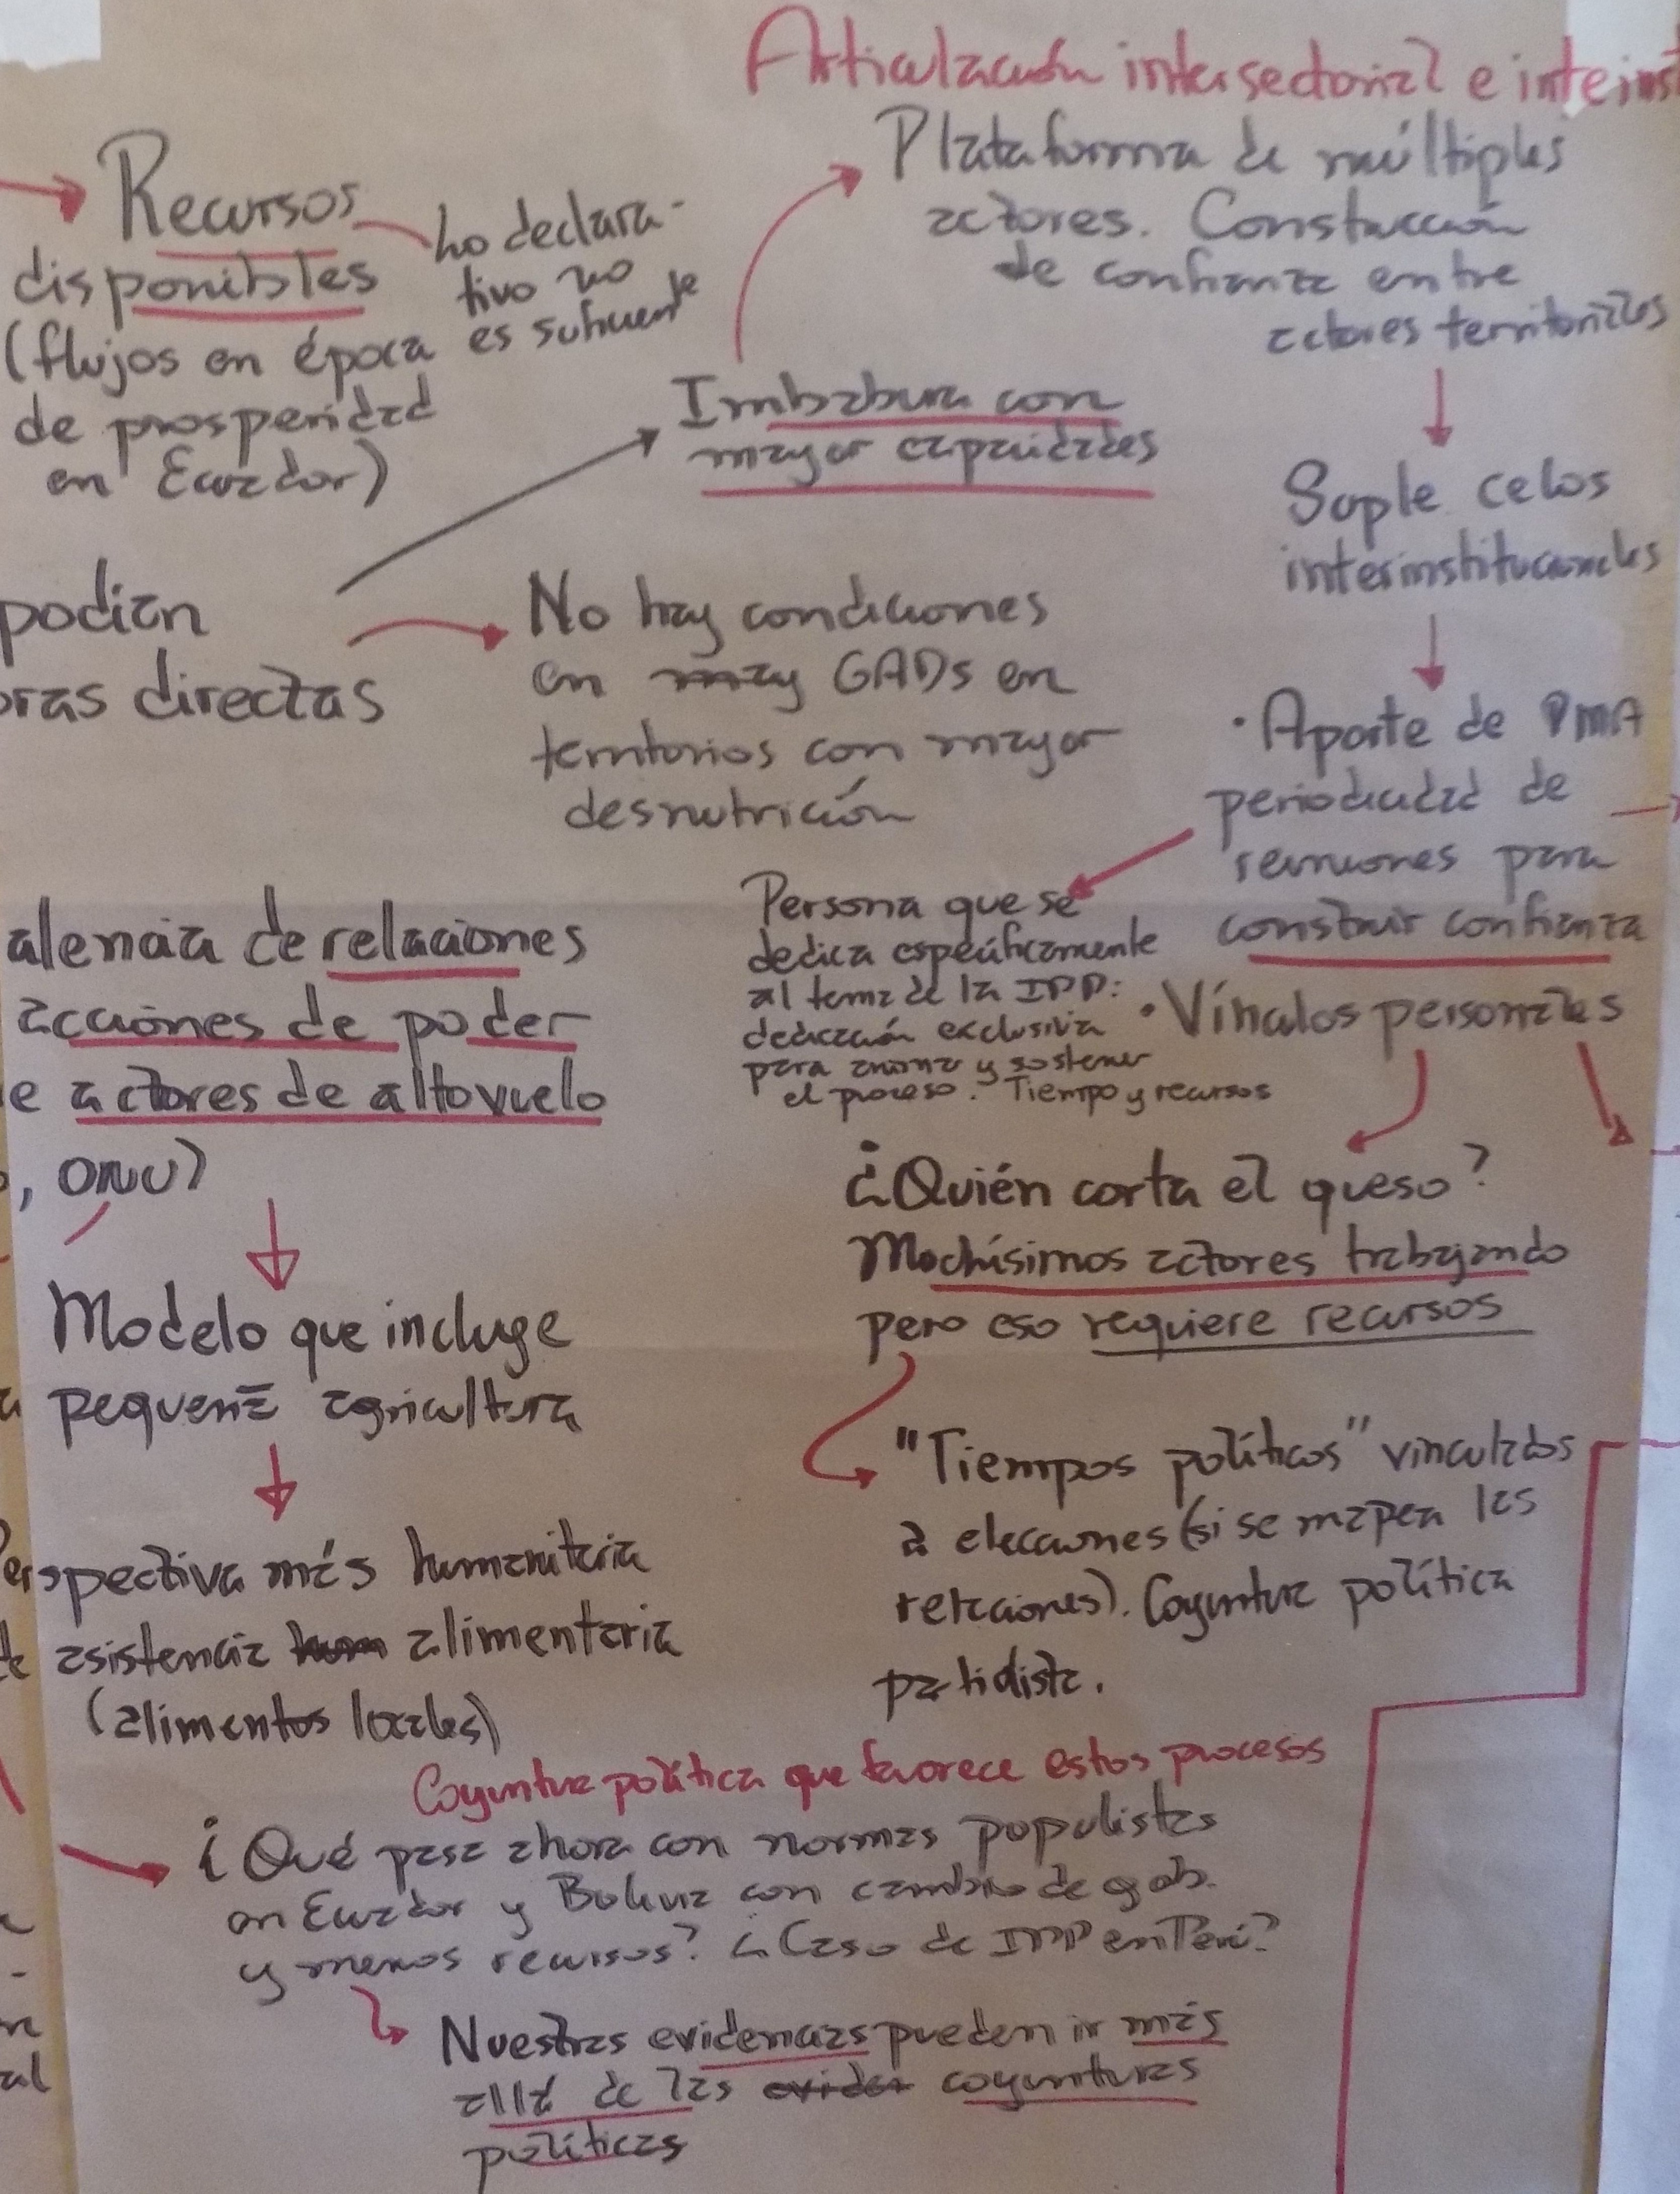 Articulación intersectorial e inteinst
Plataforma de múltiples
actores. Construcción
de confianza entre
actores territoriales
Recursos
disponibles
(flujos en época
de prosperidad
en Ecuador)
lo declara-
tivo no
es suficiente
Imbabura con
mayor capacidades
Suple celos
interinstitucionales
podían
oras directas
No hay condiciones
en muy GADs en
territorios con mayor
desnutrición
· Aporte de PMA
periodicidad de
reuniones para
construir confianza
Persona que se
dedica específicamente
al tema de la IPP:
dedicación exclusiva
para animar y sostener
el proceso. Tiempo y recursos
· Vínculos personales
alencia de relaciones
acciones de poder
e actores de alto vuelo
, ONU)
¿Quién corta el queso?
Muchísimos actores trabajando
pero eso requiere recursos
Modelo que incluye
pequeña agricultura
"Tiempos políticos" vinculados
a elecciones (si se mapea las
relaciones). Coyuntura política
partidista.
Perspectiva más humanitaria
de asistencia hum alimentaria
(alimentos locales)
Coyuntura política que favorece estos procesos
¿Qué pasa ahora con normas populistas
en Ecuador y Bolivia con cambio de gob.
y menos recursos? ¿Caso de IPP en Perú?
Nuestras evidencias pueden ir más
allá de las eviden coyunturas
políticas
al